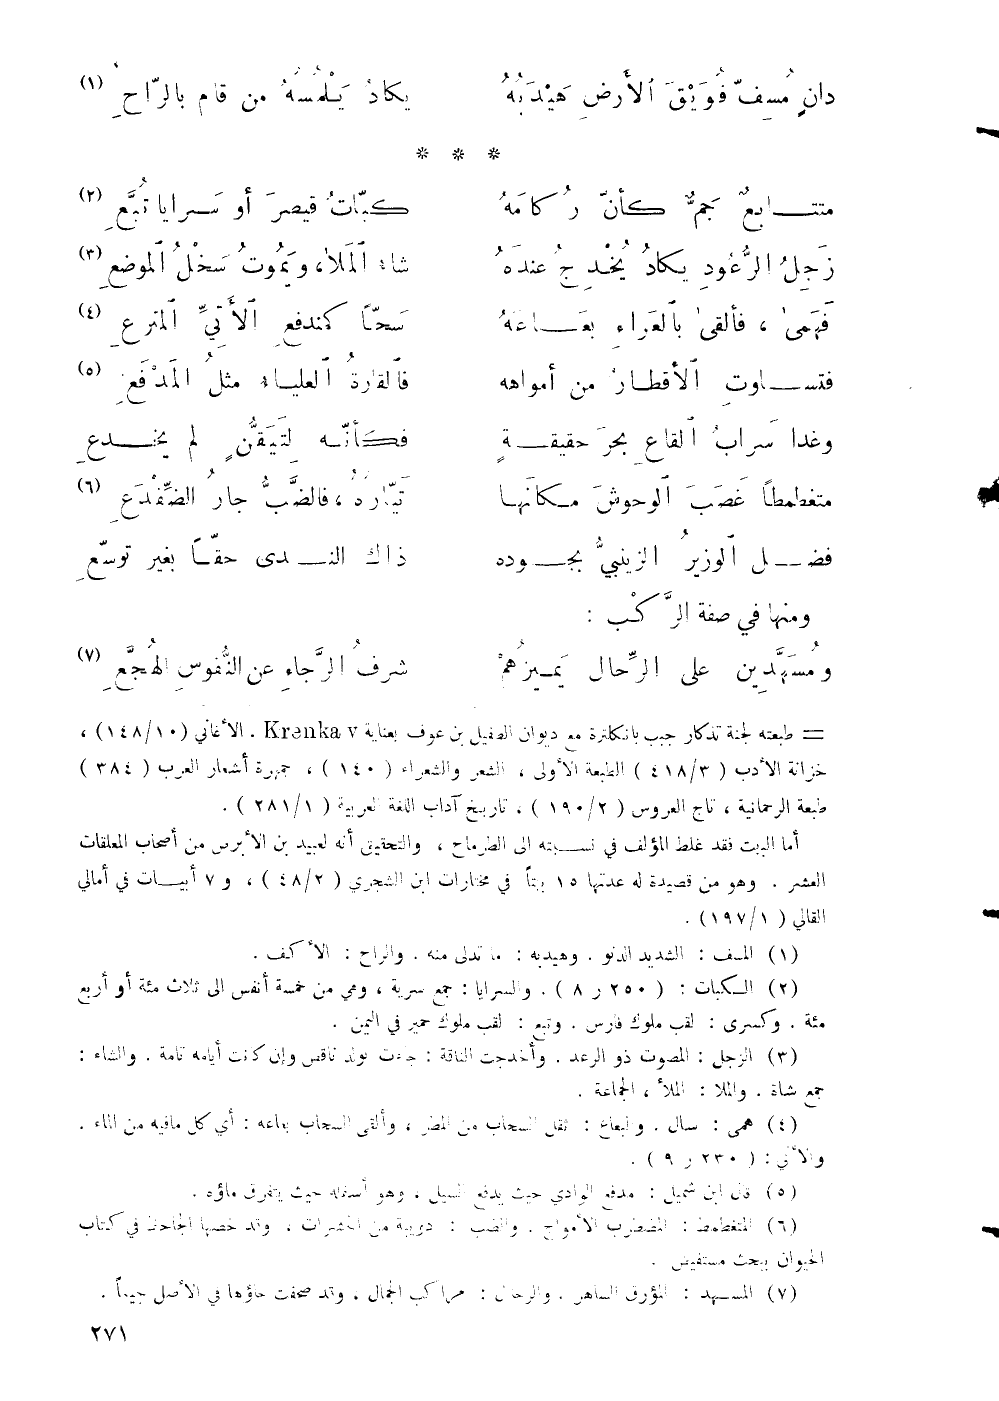 دانٍ مُسِفٌّ فُوَيْقَ ٱلأَرضِ هَيْدَبُهُ يكادُ يَلْمُسُهُ من قام بالرّاحِ (١)
* * *
متتابعٌ جَمٌّ كأنّ رُكامَهُ كبّاتُ قيصرَ أو سَرايا تُبَّعِ (٢)
زَجِلُ الرُّعُودِ يكادُ يُخْدِجُ عندَهُ شاءُ ٱلمَلا، ويَمُوتُ سَخْلُ ٱلموضعِ (٣)
فَهَمى ، فألقى بالعَراءِ بَعَاعَهُ سَحّاً كمندفعِ ٱلأَتيِّ ٱلمترعِ (٤)
فتساوتِ ٱلأقطارُ من أمواهه فالقارةُ ٱلعلياءُ مثلُ ٱلمَدْفَعِ (٥)
وغدا سَرابُ ٱلقاعِ بحرَ حقيقةٍ فكأنّه لِتَيَقُّنٍ لم يخدعِ
متغطمطاً غَصَبَ ٱلوحوشَ مكانَها تَيّارُهُ ، فالضَّبُّ جارُ الضِّفْدَعِ (٦)
فضلَ ٱلوزيرُ الزينبيُّ بجوده ذاك الندى حقّاً بغير توسّعِ
ومنها في صفة الرَّكْب :
ومُسَهَّدين على الرِّحال يَميزُهُمْ شرفُ الرَّجاءِ عن النُّفوسِ الهُجَّعِ (٧)
= طبعته لجنة تذكار جيب بانكلترة مع ديوان الطفيل بن عوف بعناية Krenka v . الأغاني (١٤٨/١٠) ،
خزانة الأدب ( ٤١٨/٣ ) الطبعة الأولى ، الشعر والشعراء ( ١٤٠ ) ، جمهرة أشعار العرب ( ٣٨٤ )
طبعة الرحمانية ، تاج العروس ( ١٩٠/٢ ) ، تاريخ آداب اللغة العربية ( ٢٨١/١ ) .
أما البيت فقد غلط المؤلف في نسبته الى الطرماح ، والتحقيق أنه لعبيد بن الأبرص من أصحاب المعلقات
العشر . وهو من قصيدة له عدتها ١٥ بيتاً في مختارات ابن الشجري ( ٤٨/٢ ) ، و ٧ أبيات في أمالي
القالي ( ١٩٧/١ ) .
(١) المسف : الشديد الدنو . وهيدبه : ما تدلى منه . والراح : الأكف .
(٢) الكبات : ( ٢٥٠ ر ٨ ) . والسرايا : جمع سرية ، وهي من خمسة أنفس الى ثلاث مئة أو أربع
مئة . وكسرى : لقب ملوك فارس . وتبع : لقب ملوك حمير في اليمن .
(٣) الزجل : المصوت ذو الرعد . وأخدجت الناقة : جاءت بولد ناقص وإن كانت أيامه تامة . والشاء :
جمع شاة . والملا : الملأ ، الجماعة .
(٤) همى : سال . والبعاع : ثقل السحاب من المطر ، وألقى السحاب بعاعه : أي كل مافيه من الماء .
والأتي : ( ٢٣٠ ر ٩ ) .
(٥) قال ابن شميل : مدفع الوادي حيث يدفع السيل ، وهو أسفله حيث يتفرق ماؤه .
(٦) المتغطمط : المضطرب الأمواج . والضب : دويبة من الحشرات . وقد خصها الجاحظ في كتاب
الحيوان ببحث مستفيض .
(٧) المسهد : المؤرق الساهر . والرحال : مراكب الجمال ، وقد صحفت حاؤها في الأصل جيماً .
٢٧١